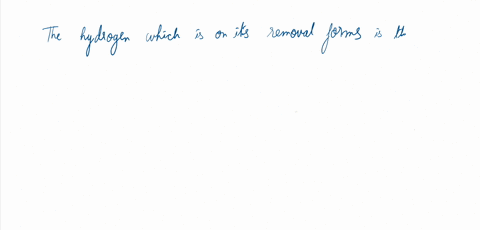 The hydrogen which is on its removal forms is H